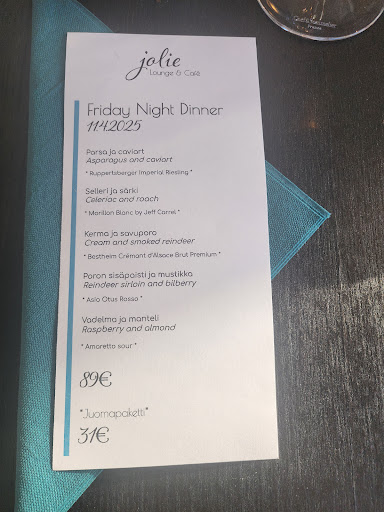 jolie
Lounge & Café
Friday Night Dinner
11.4.2025
Parsa ja caviart
Asparagus and caviart
* Ruppertsberger Imperial Riesling *
Selleri ja särki
Celeriac and roach
* Morillon Blanc by Jeff Carrel *
Kerma ja savuporo
Cream and smoked reindeer
* Bestheim Crémant d'Alsace Brut Premium *
Poron sisäpaisti ja mustikka
Reindeer sirloin and bilberry
* Asio Otus Rosso *
Vadelma ja manteli
Raspberry and almond
* Amaretto sour *
89€
*Juomapaketti*
31€